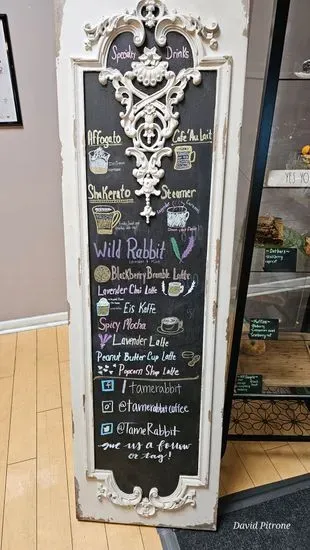 Specialty Drinks
Affogato
Cafe Au Lait
Shakerato
Steamer
Wild Rabbit
BlackBerry Bramble Latte
Lavender Chai Latte
Eis Kaffe
Spicy Mocha
Lavender Latte
Peanut Butter Cup Latte
Popcorn Shop Latte
/tamerabbit
@tamerabbitcoffee
@TameRabbit
give us a follow
or tag!
YES-YO
David Pitrone